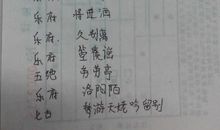 乐府 将进酒
乐府 久别离
乐府 空城雀
五绝 劳劳亭
乐府 洛阳陌
七古 梦游天姥吟留别